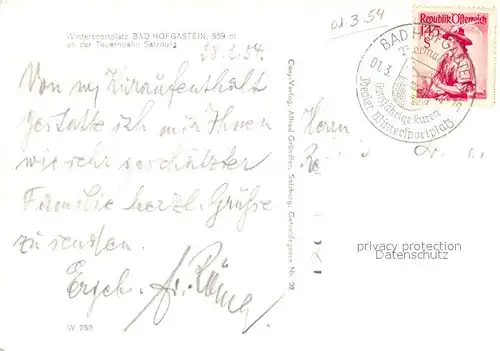 Wintersportplatz BAD HOFGASTEIN, 869 m
an der Tauernbahn Salzburg
28.2.54.
Von m/ Kuraufenthalt
gestatte ich mir Ihnen
wie sehr geschätzter
Familie herzl. Grüße
zu senden.
Ergeb.
W 750
Cosy-Verlag, Alfred Gründler, Salzburg, Getreidegasse Nr. 22
01.3.54
Republik Österreich
1.45
S
BAD HOFGASTEIN
01.3.
Ganzjährige Kuren
Idealer Wintersportplatz
Herrn
privacy protection
Datenschutz